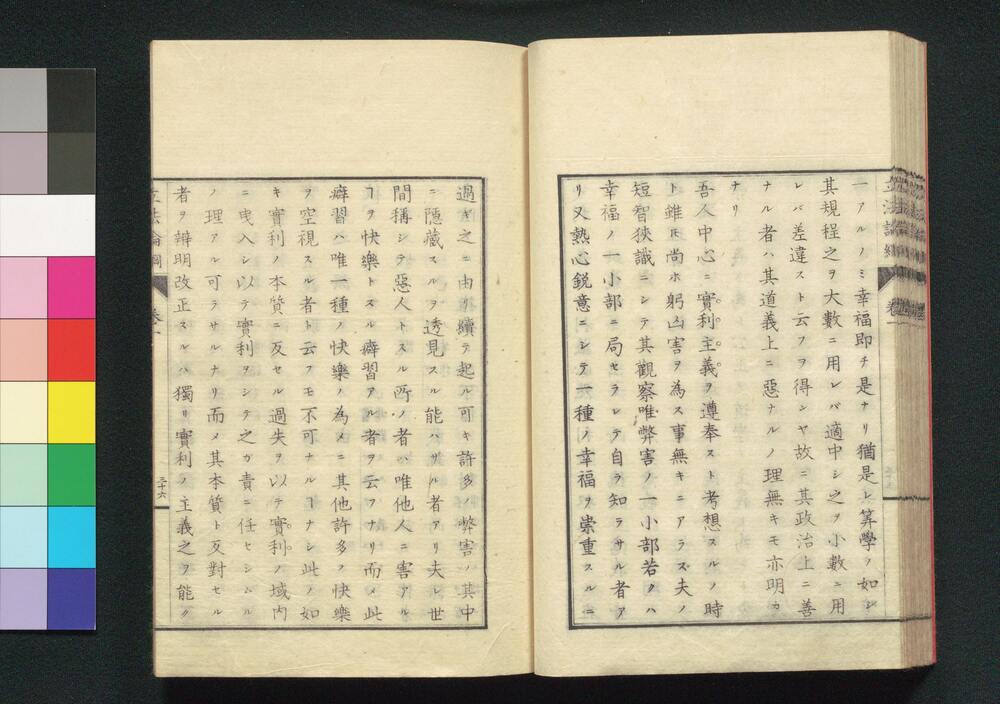 一アルノミ幸福即チ是ナリ猶是レ算學ノ如シ
其規程之ヲ大數ニ用レバ適中シ之ヲ小數ニ用
レバ差違スト云フヲ得シヤ故ニ其政治上ニ善
ナル者ハ其道義上ニ惡ナルノ理無キモ亦明カ
ナリ
吾人中心ニ實利主義ヲ遵奉スト考想スルノ時
ト雖𪜈尚ホ躬凶害ヲ為ス事無キニアラズ夫ノ
短智狹識ニシテ其觀察唯弊害ノ一小部若クハ
幸福ノ一小部ニ局セラレテ自ラ知ラサル者ア
リ又熱心鋭意ニシテ一種ノ幸福ヲ崇重スルニ
過ギ之ニ由リ續テ起ル可キ許多ノ弊害ノ其中
ニ隱藏スルヲ透見スル能ハザル者アリ夫レ世
間稱シテ惡人トスル所ノ者ハ唯他人ニ害アル
ヿヲ快樂トスル癖習アル者ヲ云フナリ而メ此
癖習ハ唯一種ノ快樂ノ為メニ其他許多ノ快樂
ヲ空視スル者ト云フモ不可ナルヿナシ此ノ如
キ實利ノ本質ニ反セル過失ヲ以テ實利ノ域内
ニ曳入シ以テ實利ヲシテ之カ責ニ任セシムル
ノ理アル可ラサルナリ而メ其本質ト反對セル
者ヲ辯明改正スルハ獨リ實利ノ主義之ヲ能ク
立法論綱
三十六